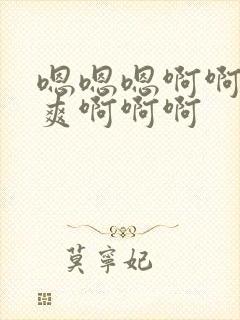 嗯嗯嗯啊啊
爽啊啊啊
莫寧妃